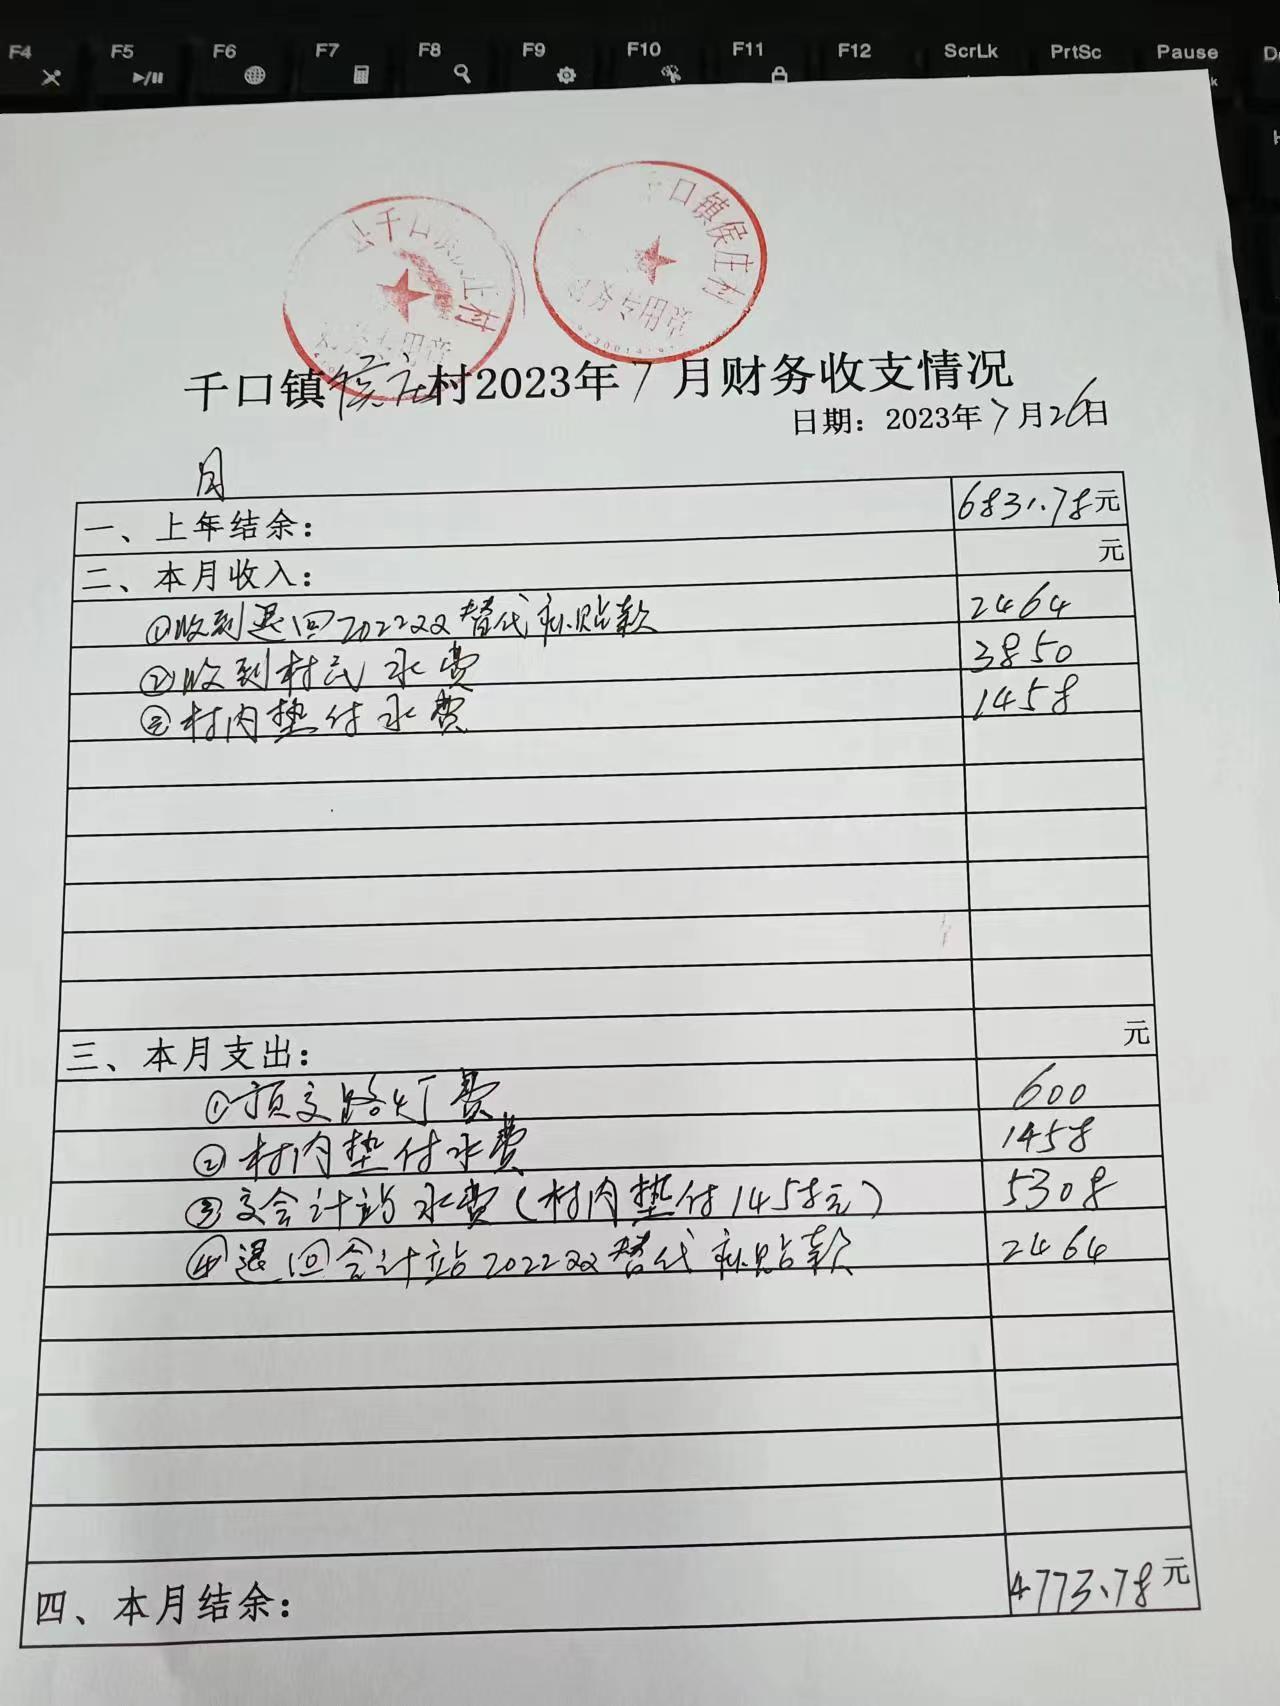 F4 F5 F6 F7 F8 F9 F10 F11 F12 ScrLk PrtSc Pause
千口 村
口镇侯庄村
务专用章
千口镇侯庄村2023年7月财务收支情况
日期：2023年7月26日
月
一、上年结余： 6831.78元
二、本月收入： 元
①收到退回2022双替代补贴款 2464
②收到村民水费 3850
③村内垫付水费 1458
三、本月支出： 元
①预交路灯费 600
②村内垫付水费 1458
③交会计站水费（村内垫付1458元） 5308
④退回会计站2022双替代补贴款 2464
四、本月结余： 4773.78元